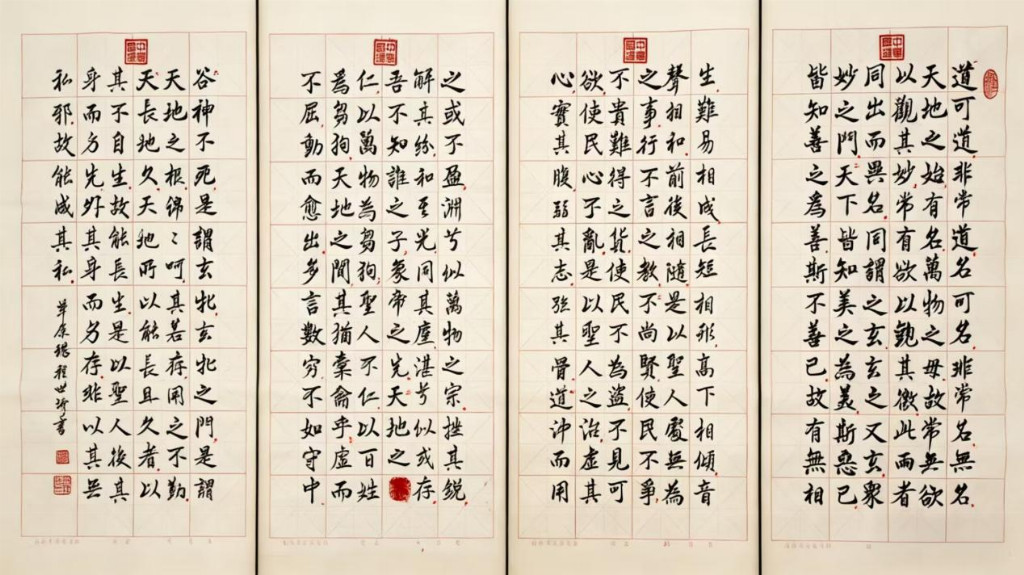 道可道非常道名可名非常名無名
天地之始有名萬物之母故常無欲
以觀其妙常有欲以觀其徼此兩者
同出而異名同謂之玄玄之又玄眾
妙之門天下皆知美之為美斯惡已
皆知善之爲善斯不善已故有無相
生難易相成長短相形高下相傾音
聲相和前後相隨是以聖人處無為
之事行不言之教不尚賢使民不爭
不貴難得之貨使民不為盜不見可
欲使民心不亂是以聖人之治虛其
心實其腹弱其志强其骨道沖而用
之或不盈淵兮似萬物之宗挫其銳
解其紛和其光同其塵湛兮似或存
吾不知誰之子象帝之先天地之
仁以萬物為芻狗聖人不仁以百姓
爲芻狗天地之間其猶橐龠乎虛而
不屈動而愈出多言數窮不如守中
谷神不死是謂玄牝玄牝之門是謂
天地之根綿〻呵其若存用之不勤
天長地久天地所以能長且久者以
其不自生故能長生是以聖人後其
身而身先外其身而身存非以其無
私邪故能成其私
草原 程世 書